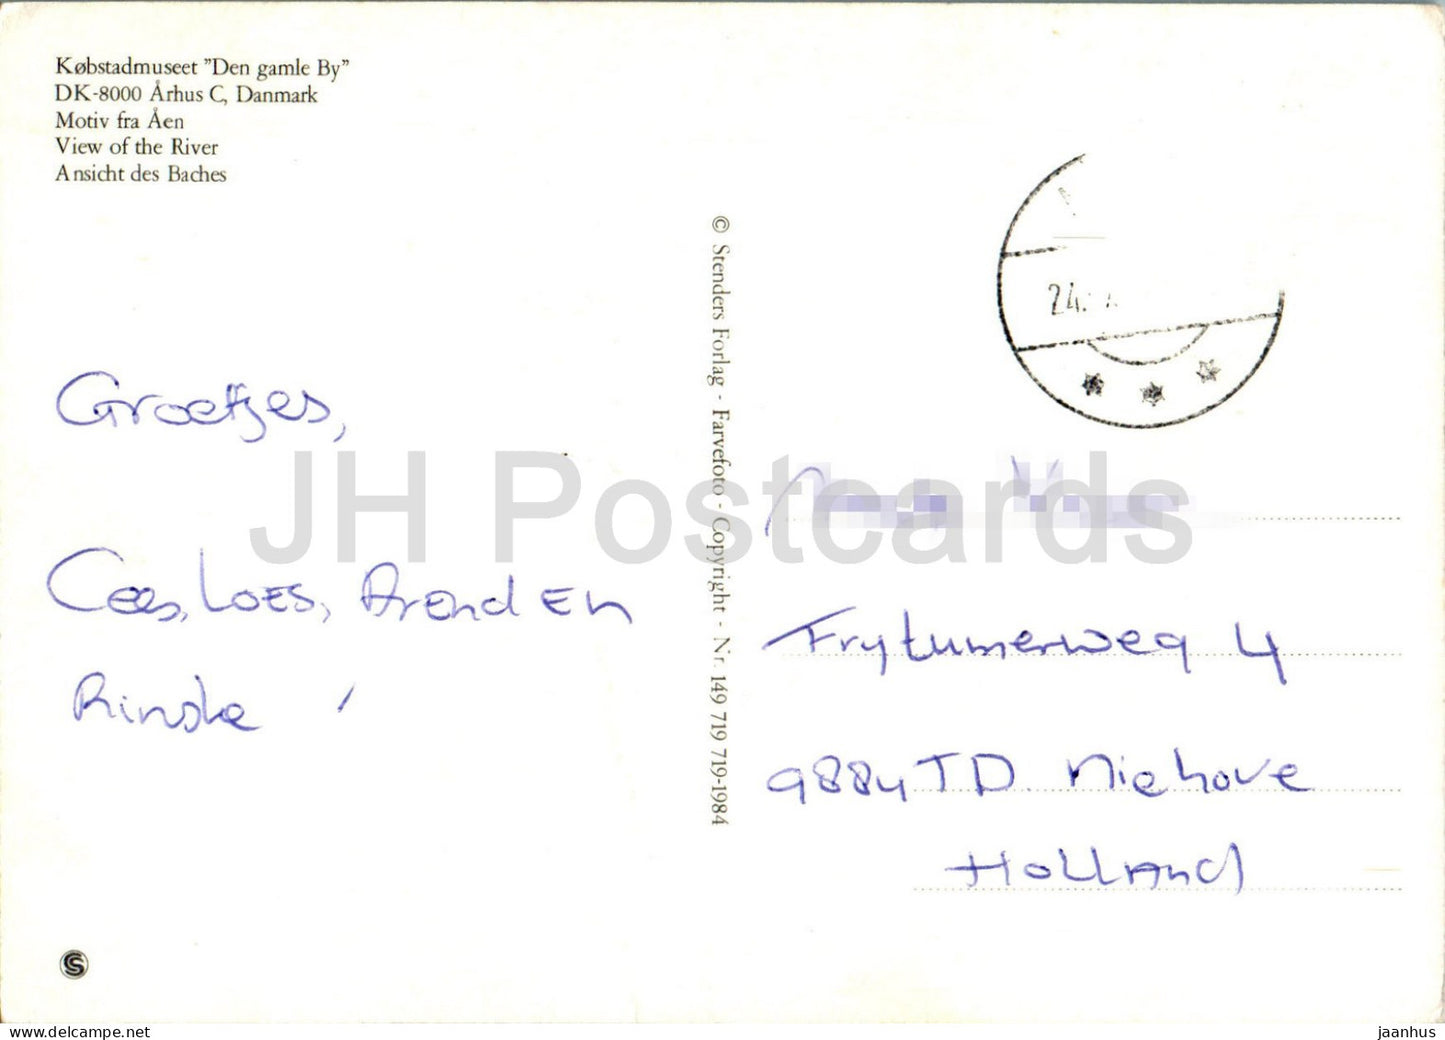 Købstadmuseet "Den gamle By"
DK-8000 Århus C, Danmark
Motiv fra Åen
View of the River
Ansicht des Baches
© Stenders Forlag - Farvefoto - Copyright - Nr. 149 719 719-1984
24.
Groetjes,
Cees, Loes, Arend En
Rinske
JH Postcards
Frytumerweg 4
9884 TD Niehove
Holland
S
www.delcampe.net
jaanhus